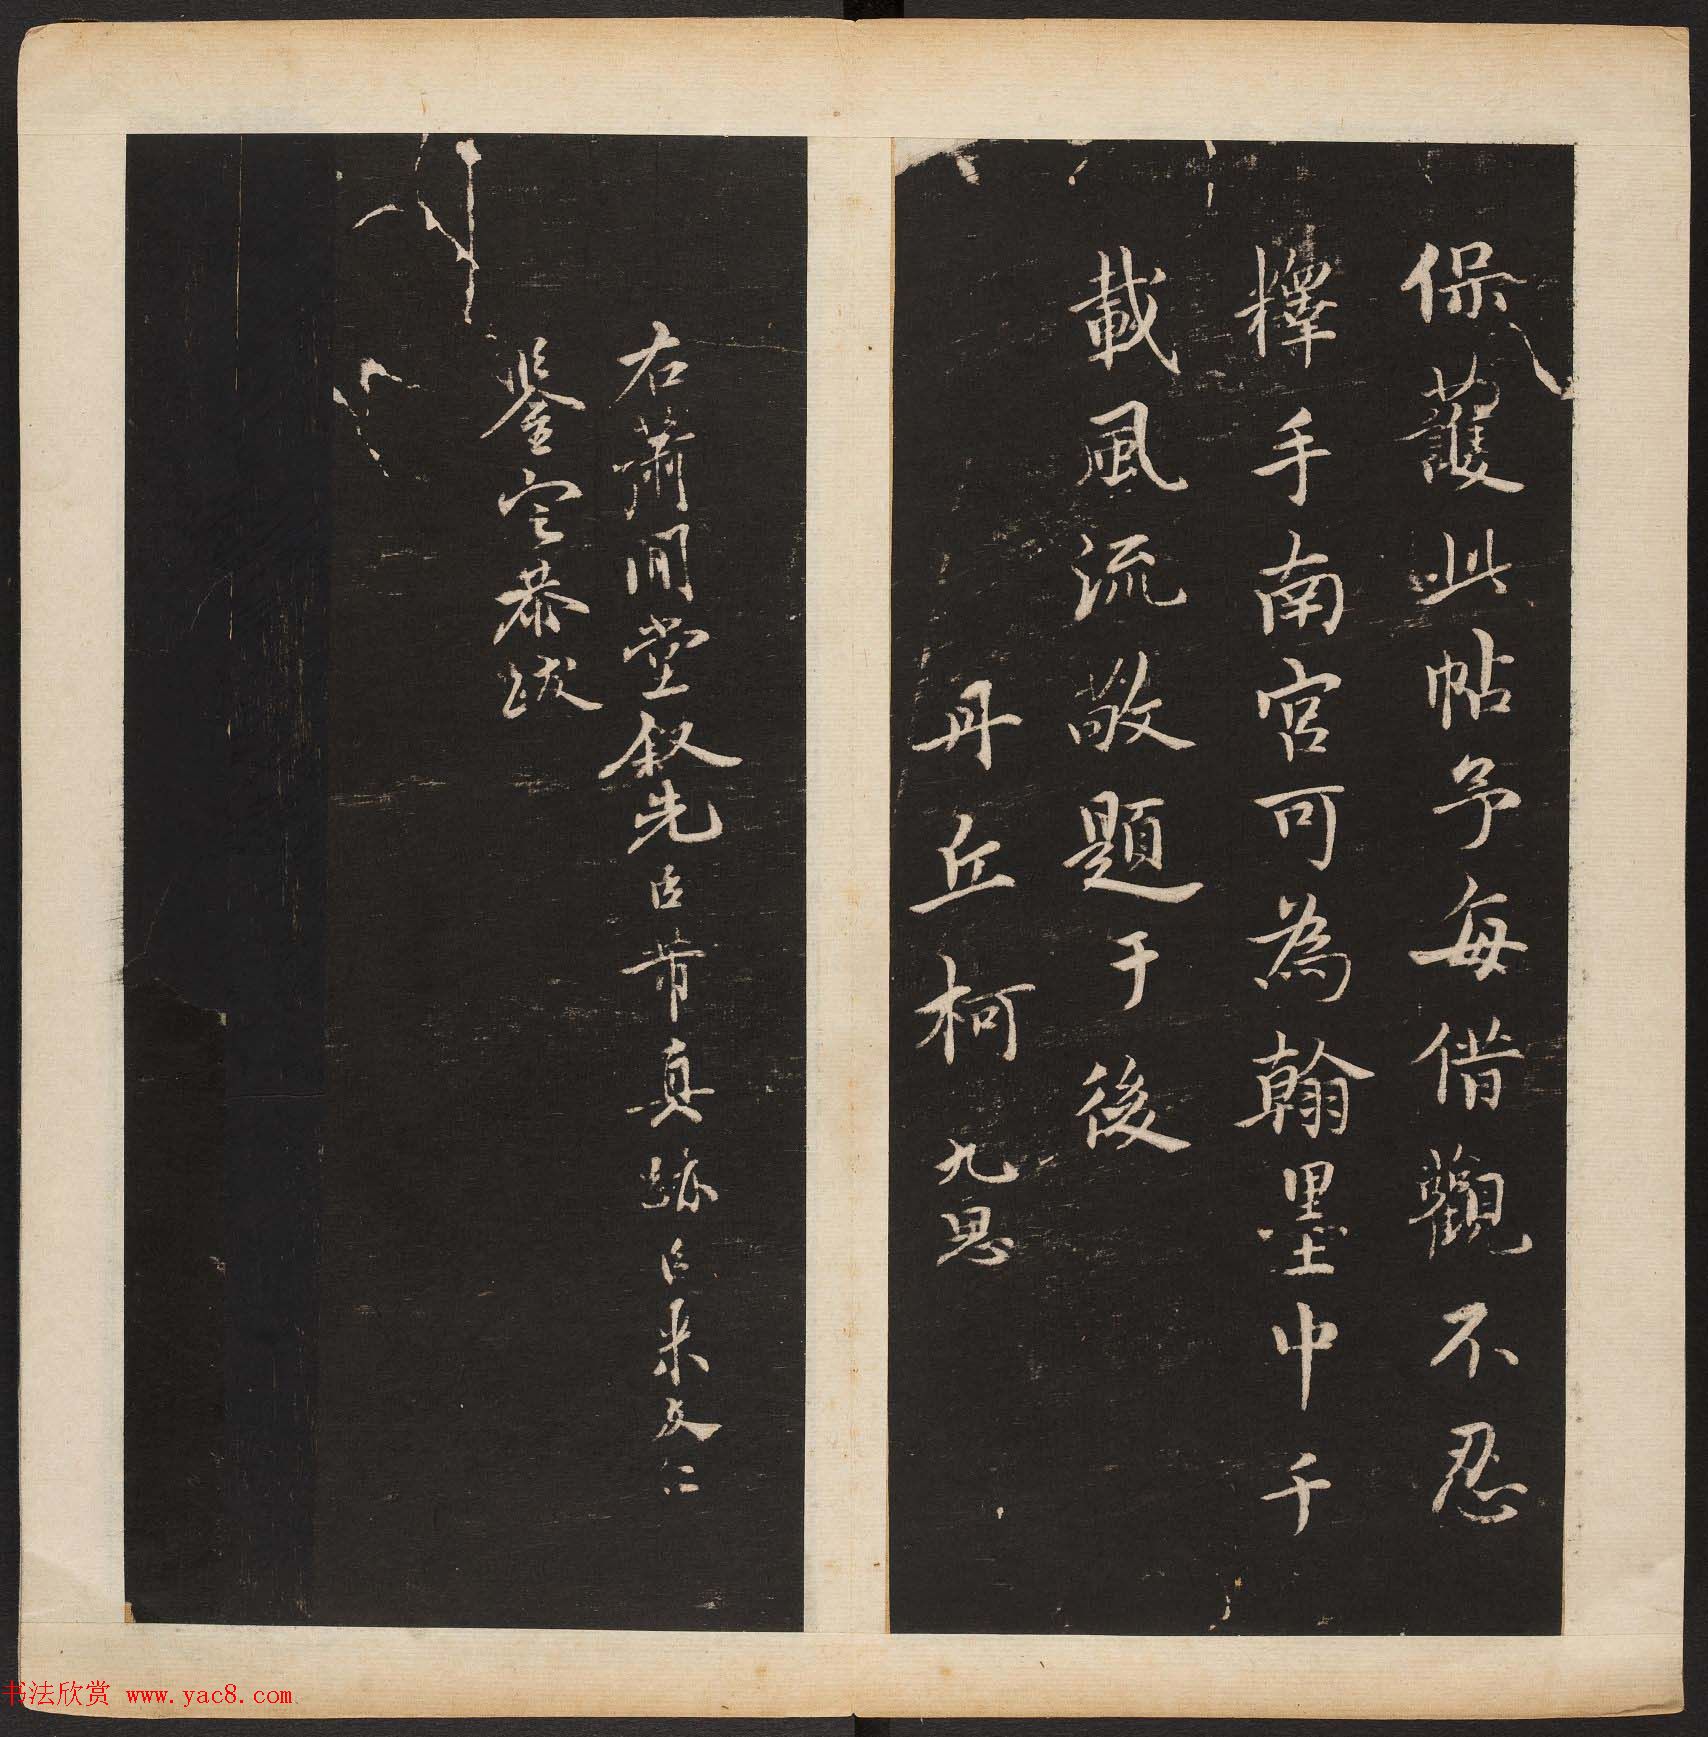 保護此帖予每借觀不忍
釋手南宮可為翰墨中千
載風流敬題于後
丹丘柯九思
右蕭閒堂叙先臣芾真跡臣米友仁
鑒定恭跋
书法欣赏 www.yac8.com